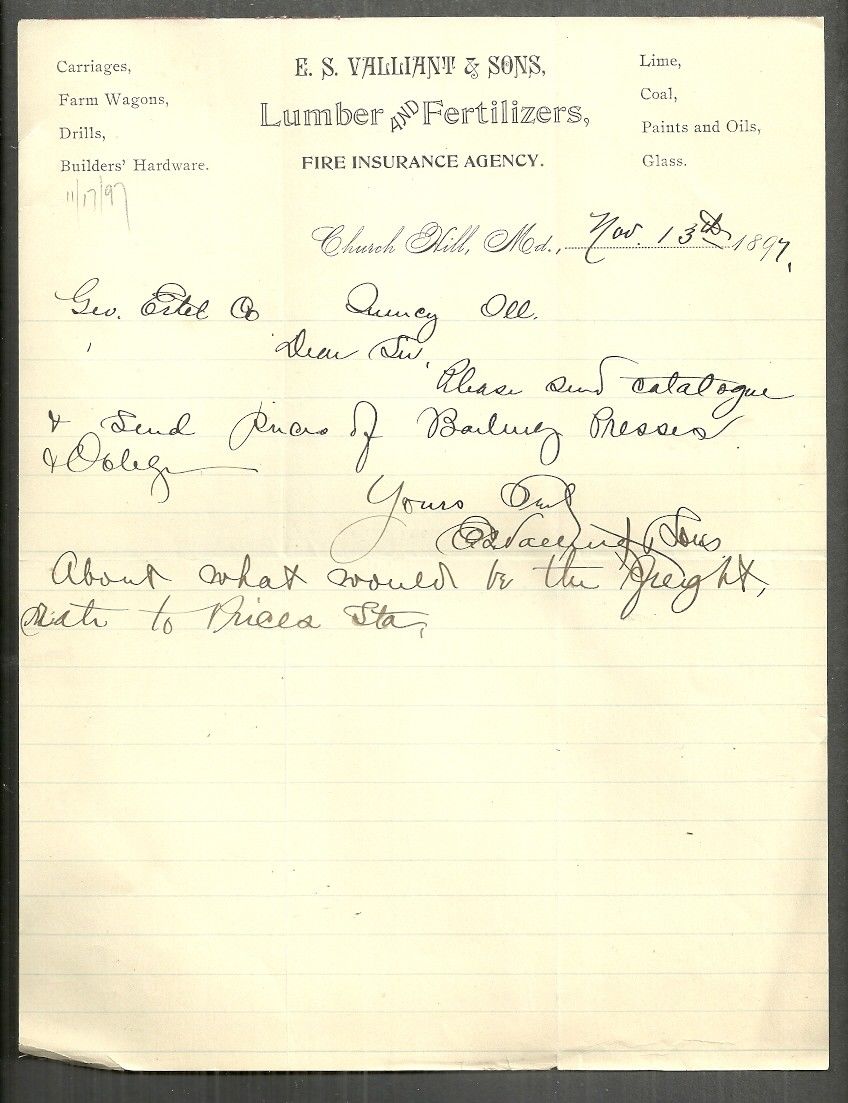 Carriages,
Farm Wagons,
Drills,
Builders' Hardware.
E. S. VALLIANT & SONS,
Lumber AND Fertilizers,
FIRE INSURANCE AGENCY.
Lime,
Coal,
Paints and Oils,
Glass.
11/17/97
Church Hill, Md., Nov. 13th 1897.
Geo. Ertel Co Quincy Ill.
Dear Sir,
Please send catalogue
& Send prices of Bailing Presses
& Oblige
Yours
ES Valliant & Sons
About what would be the freight,
rate to Prices Sta,